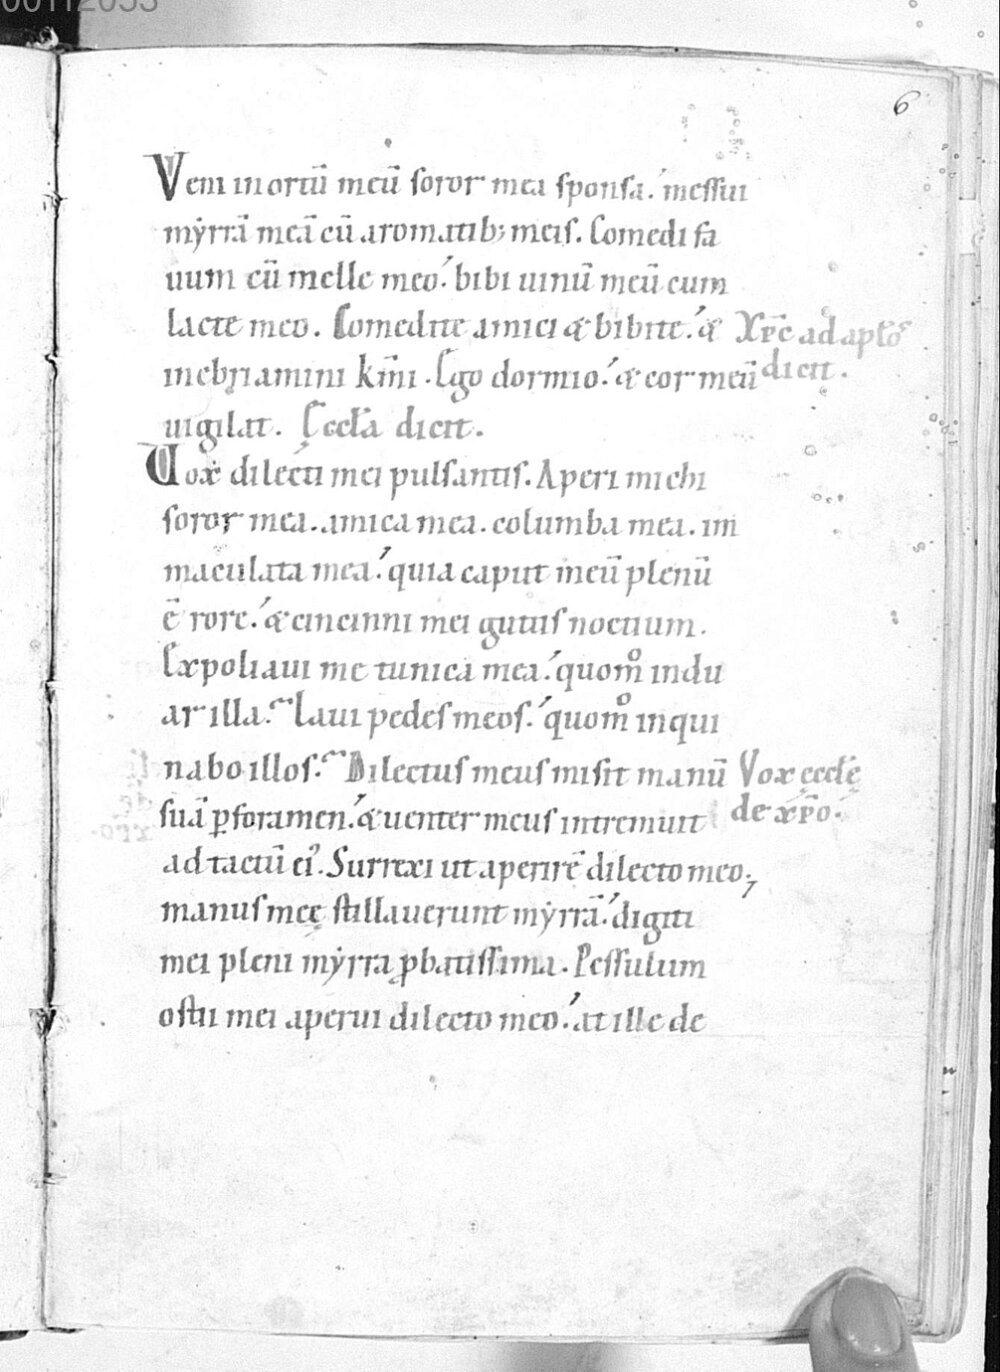 00112053
6
Veni in ortū meū soror mea sponsa. messui
myrrā meā cū aromatib; meis. Comedi fa
uum cū melle meo. bibi uinū meū cum
lacte meo. Comedite amici & bibite. & Xp̄c ad aplōs
inebriamini km̄i. Ego dormio. & cor meū dicit.
uigilat. Ęccła dicit.
Vox dilecti mei pulsantis. Aperi michi
soror mea. amica mea. columba mea. im
maculata mea. quia caput meū plenū
ē rore. & cincinni mei guttis noctium.
Expoliaui me tunica mea. quom̊ indu
ar illa. Laui pedes meos. quom̊ inqui
nabo illos. Dilectus meus misit manū Vox ęcclę
suā ꝑ foramen. & uenter meus intremuit de xp̄o.
ad tactū ei'. Surrexi ut aperirē dilecto meo.
manus meę stillauerunt myrrā. digiti
mei pleni myrra ꝓbatissima. Pessulum
ostii mei aperui dilecto meo. at ille de